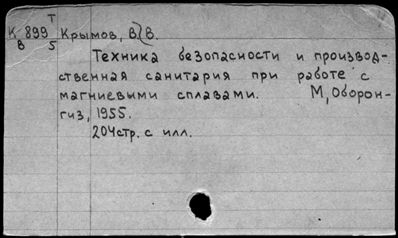 Т
К 899 Крымов, В. В.
В 5
Техника безопасности и производ-
ственная санитария при работе с
магниевыми сплавами. М, Оборон-
гиз, 1955.
204стр. с илл.